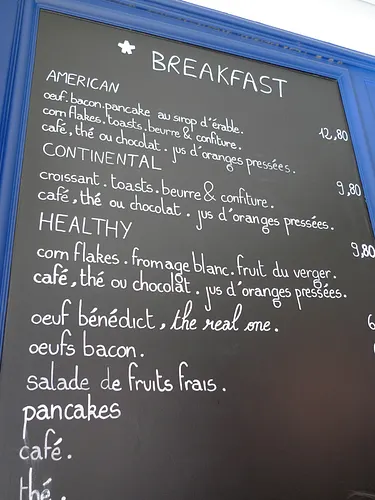 * BREAKFAST
AMERICAN
oeuf.bacon.pancake au sirop d'érable.
corn flakes.toasts.beurre & confiture. 12,80
café, thé ou chocolat. jus d'oranges pressées.
CONTINENTAL
croissant.toasts.beurre & confiture. 9,80
café, thé ou chocolat. jus d'oranges pressées.
HEALTHY 9,80
corn flakes.fromage blanc.fruit du verger.
café, thé ou chocolat. jus d'oranges pressées.
oeuf bénédict, the real one. 6
oeufs bacon.
salade de fruits frais.
pancakes
café.
thé.